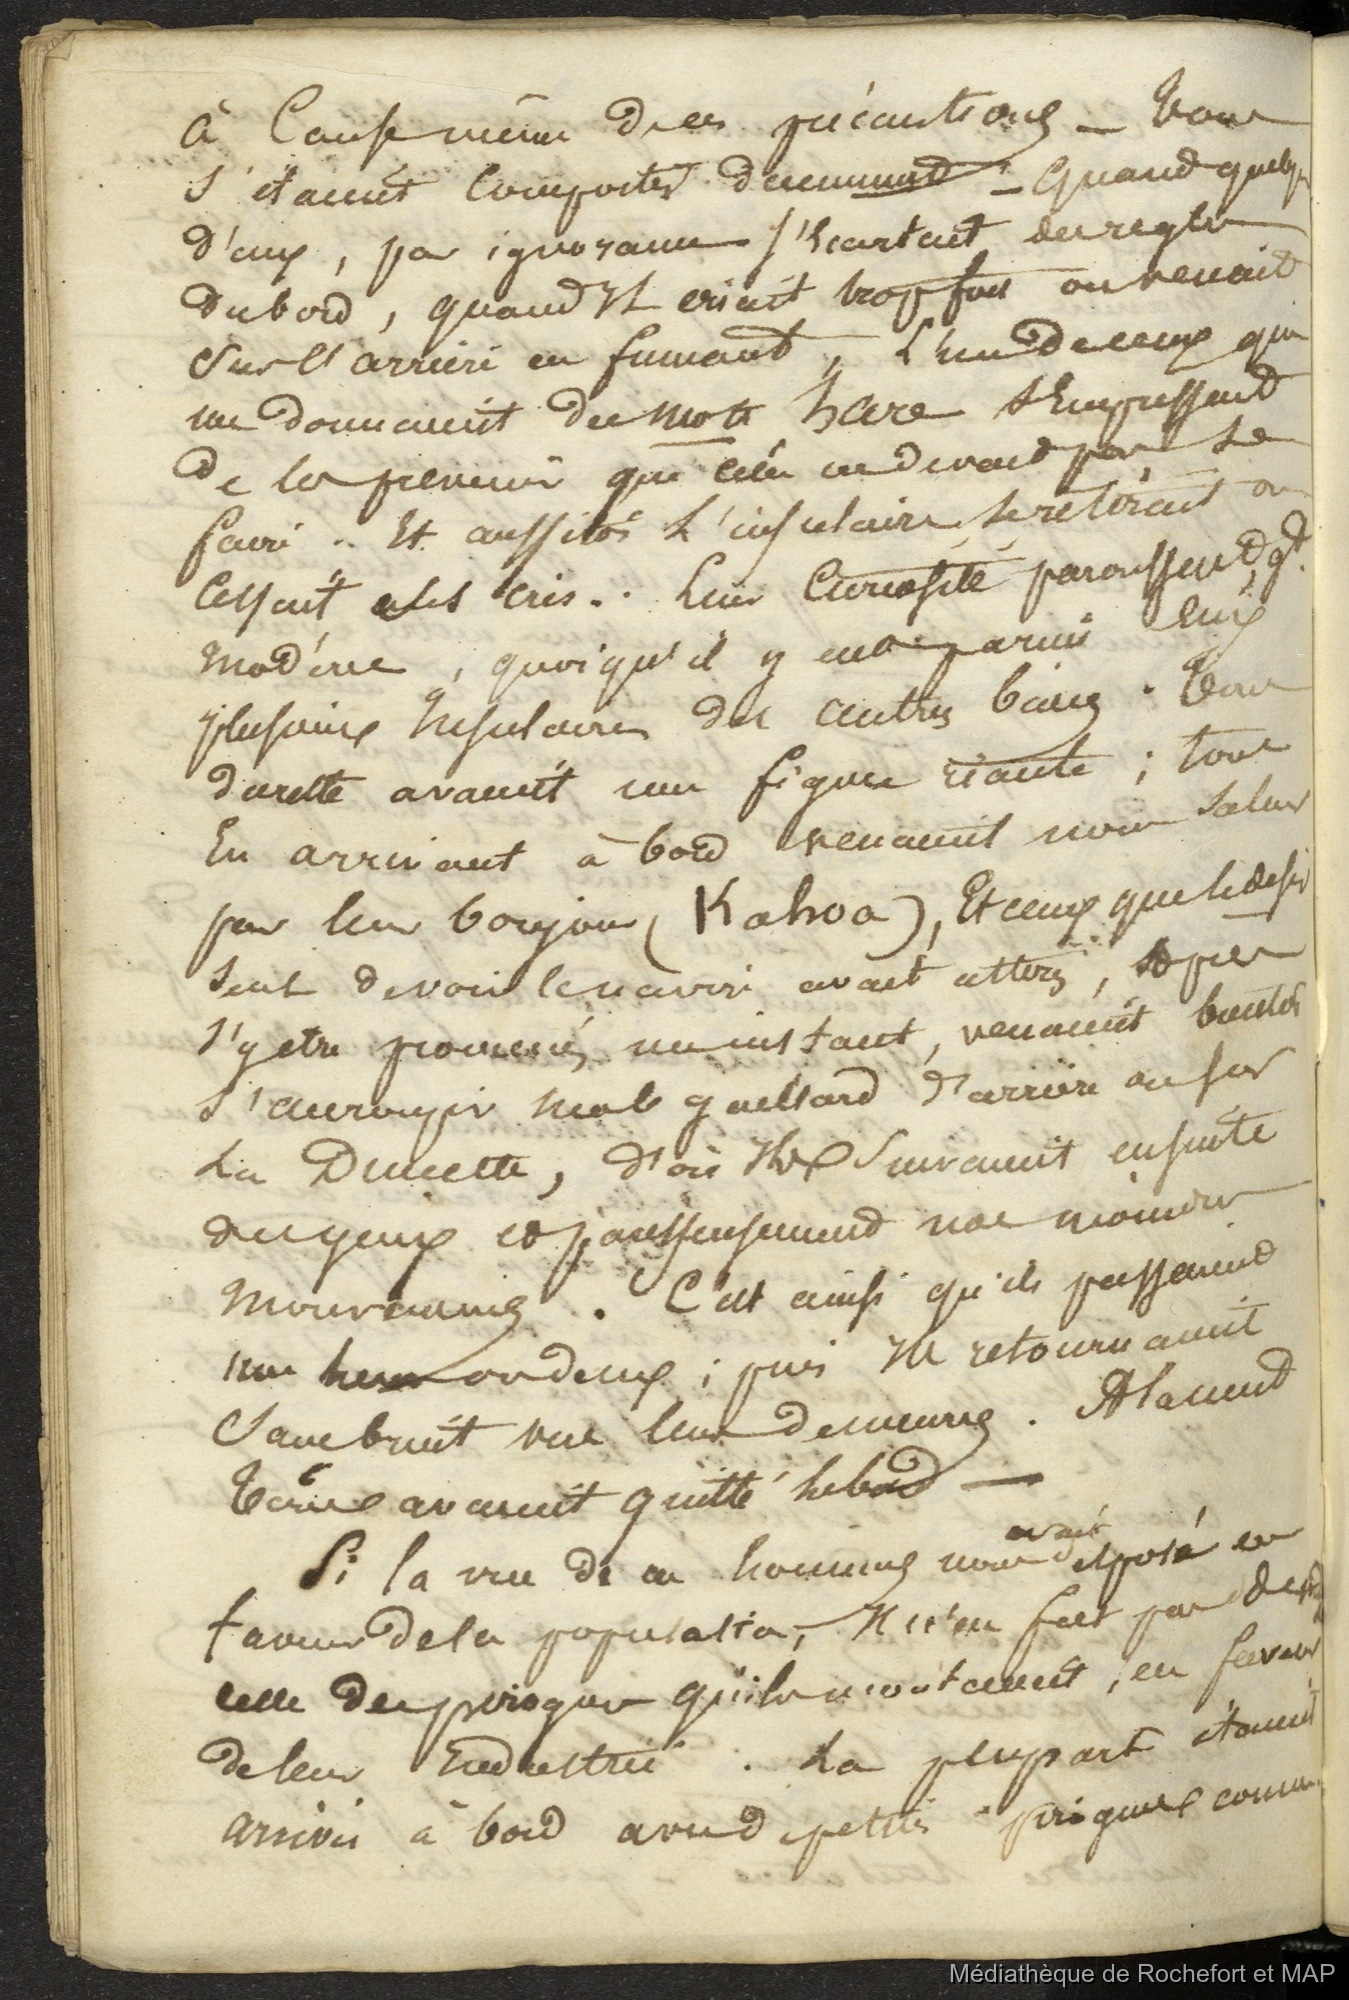 à cause même de ces précautions — Tous
s'étaient comportés décemment — Quand quelqu'
d'eux, par ignorance s'écartait des regles
du bord, quand il criait trop fort ou venait
sur l'arriere en fumant, l'un de ceux qui
me donnaient des mots here s'empressait
de les prevenir que cela ne devait pas se
faire .. Et aussitôt l'insulaire se retirait ou
cessait ses cris .. Leur curiosité paroissait, qd
modérée, quoiqu'il y eut parmi eux
plusieurs insulaires des autres baies. Tous
du reste avaient une figure riante ; tous
En arrivant à bord venaient nous saluer
par leur bonjour (Kahoa), Et ceux que le desir
seul de voir le navire avait attirés, apres
s'y etre promenés un instant, venaient bientôt
s'accroupir sur le gaillard d'arriere ou sur
La Dunette, d'où ils suivaient ensuite
des yeux et paresseusement nos moindres
mouvemens. C'est ainsi qu'ils passaient
une heure ou deux ; puis ils retournaient
sans bruit vers leurs demeures. A la nuit
Tous avaient quitté le bord —
Si la vue de ces hommes nous avait
en
faveur de la population, il n'en fut pas de
celle des pirogues qu'ils montaient, en faveur
de leur Industrie. La plupart étaient
arrivés à bord avec de petites pirogues comme
Médiathèque de Rochefort et MAP